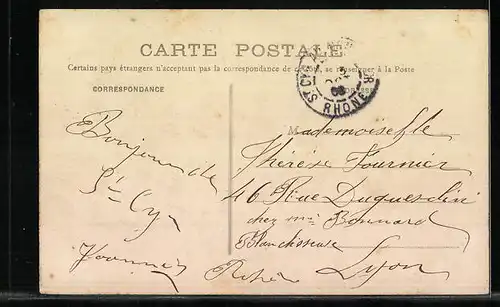 CARTE POSTALE
Certains pays étrangers n'acceptant pas la correspondance de ce côté, se renseigner à la Poste
CORRESPONDANCE
ST CYR OR
RHONE
Bonjour de
St Cyr
Mademoiselle
Thérèse Fournier
46 Rue Duguesclin
chez Mme Bonnard
Blanchisseuse
Rhône Lyon